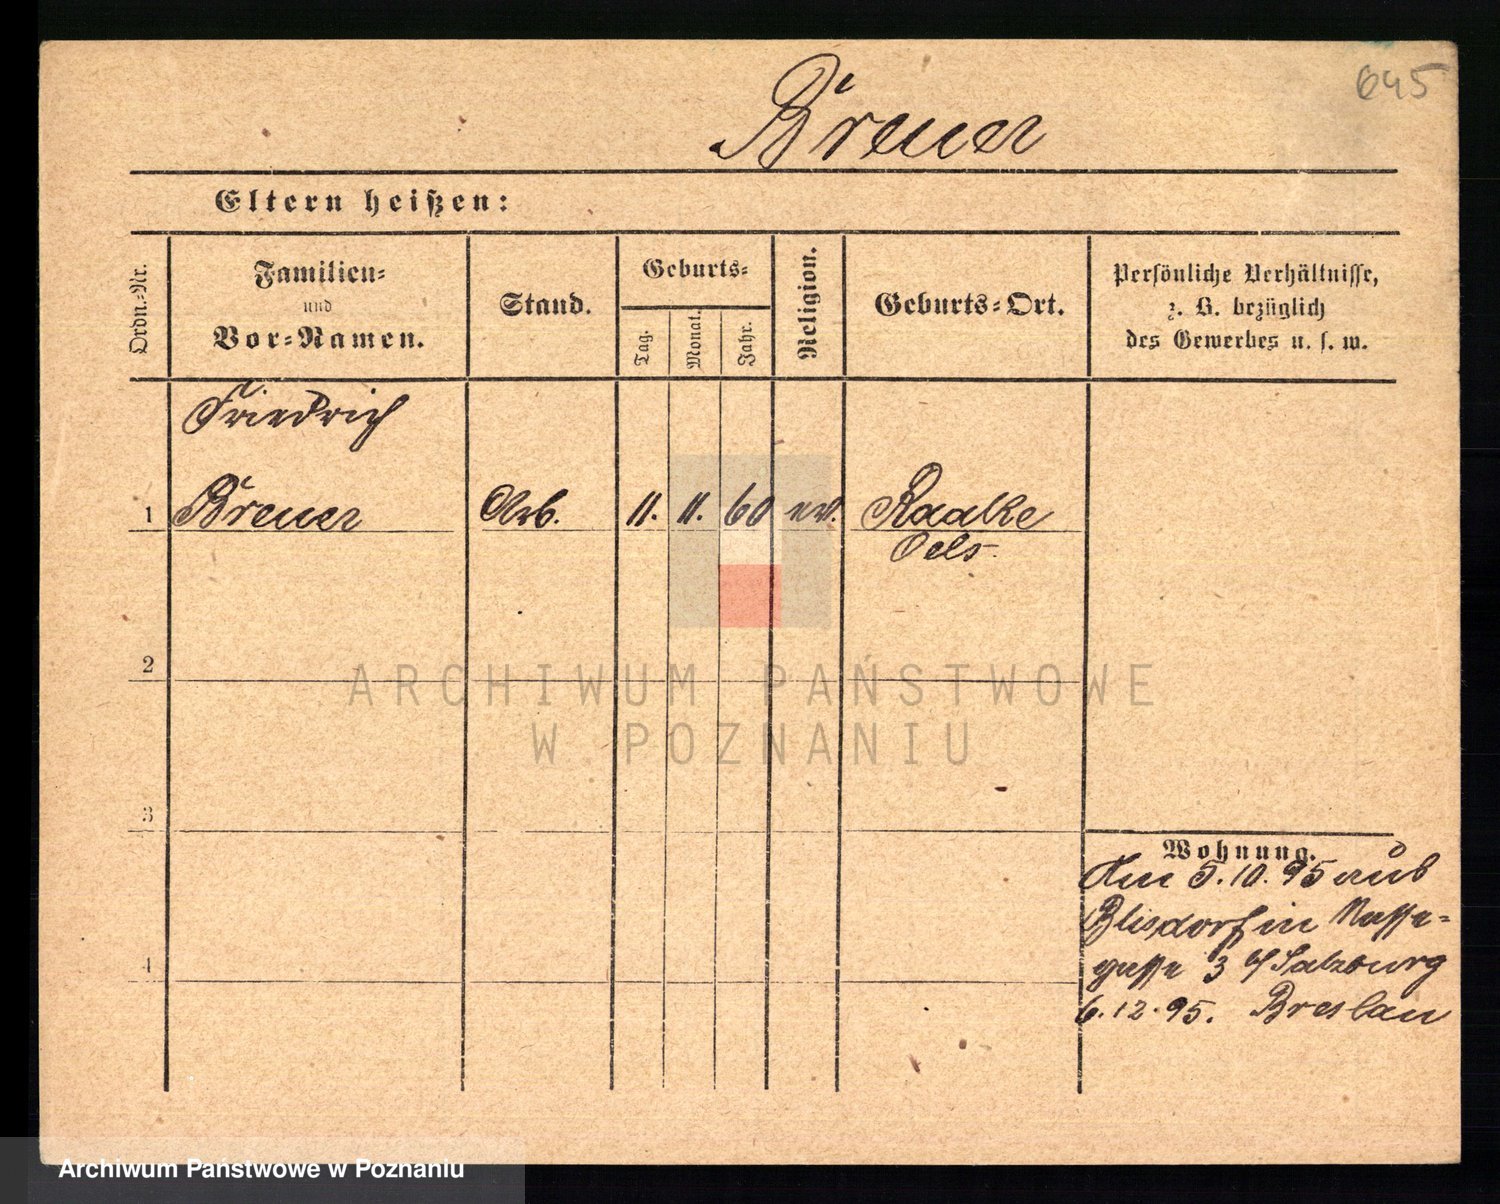 645
Breuer
Eltern heißen:
Ordn.-Nr.
Familien-
und
Vor-Namen.
Stand.
Geburts-
Tag.
Monat.
Jahr.
Religion.
Geburts-Ort.
Persönliche Verhältnisse,
z. B. bezüglich
des Gewerbes u. s. w.
Friedrich
1 Breuer Arb. 11. 11. 60 ev. Raake
Oels
2
ARCHIWUM PAŃSTWOWE
W POZNANIU
3
Wohnung.
Am 5.10.95 aus
in
gasse 3 Salzburg
4
6.12.95. Breslau
Archiwum Państwowe w Poznaniu